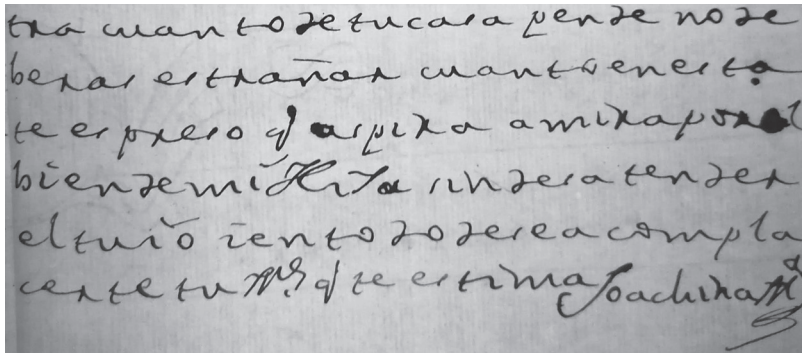 tra cuanto de tu casa pende no de
beras estrañar cuanto en esta
te espreso q aspira a mirar por el
bien de mi Hija sin desatender
el tuio i en todo desea compla
certe tu M.e q te estima Joachina M.a